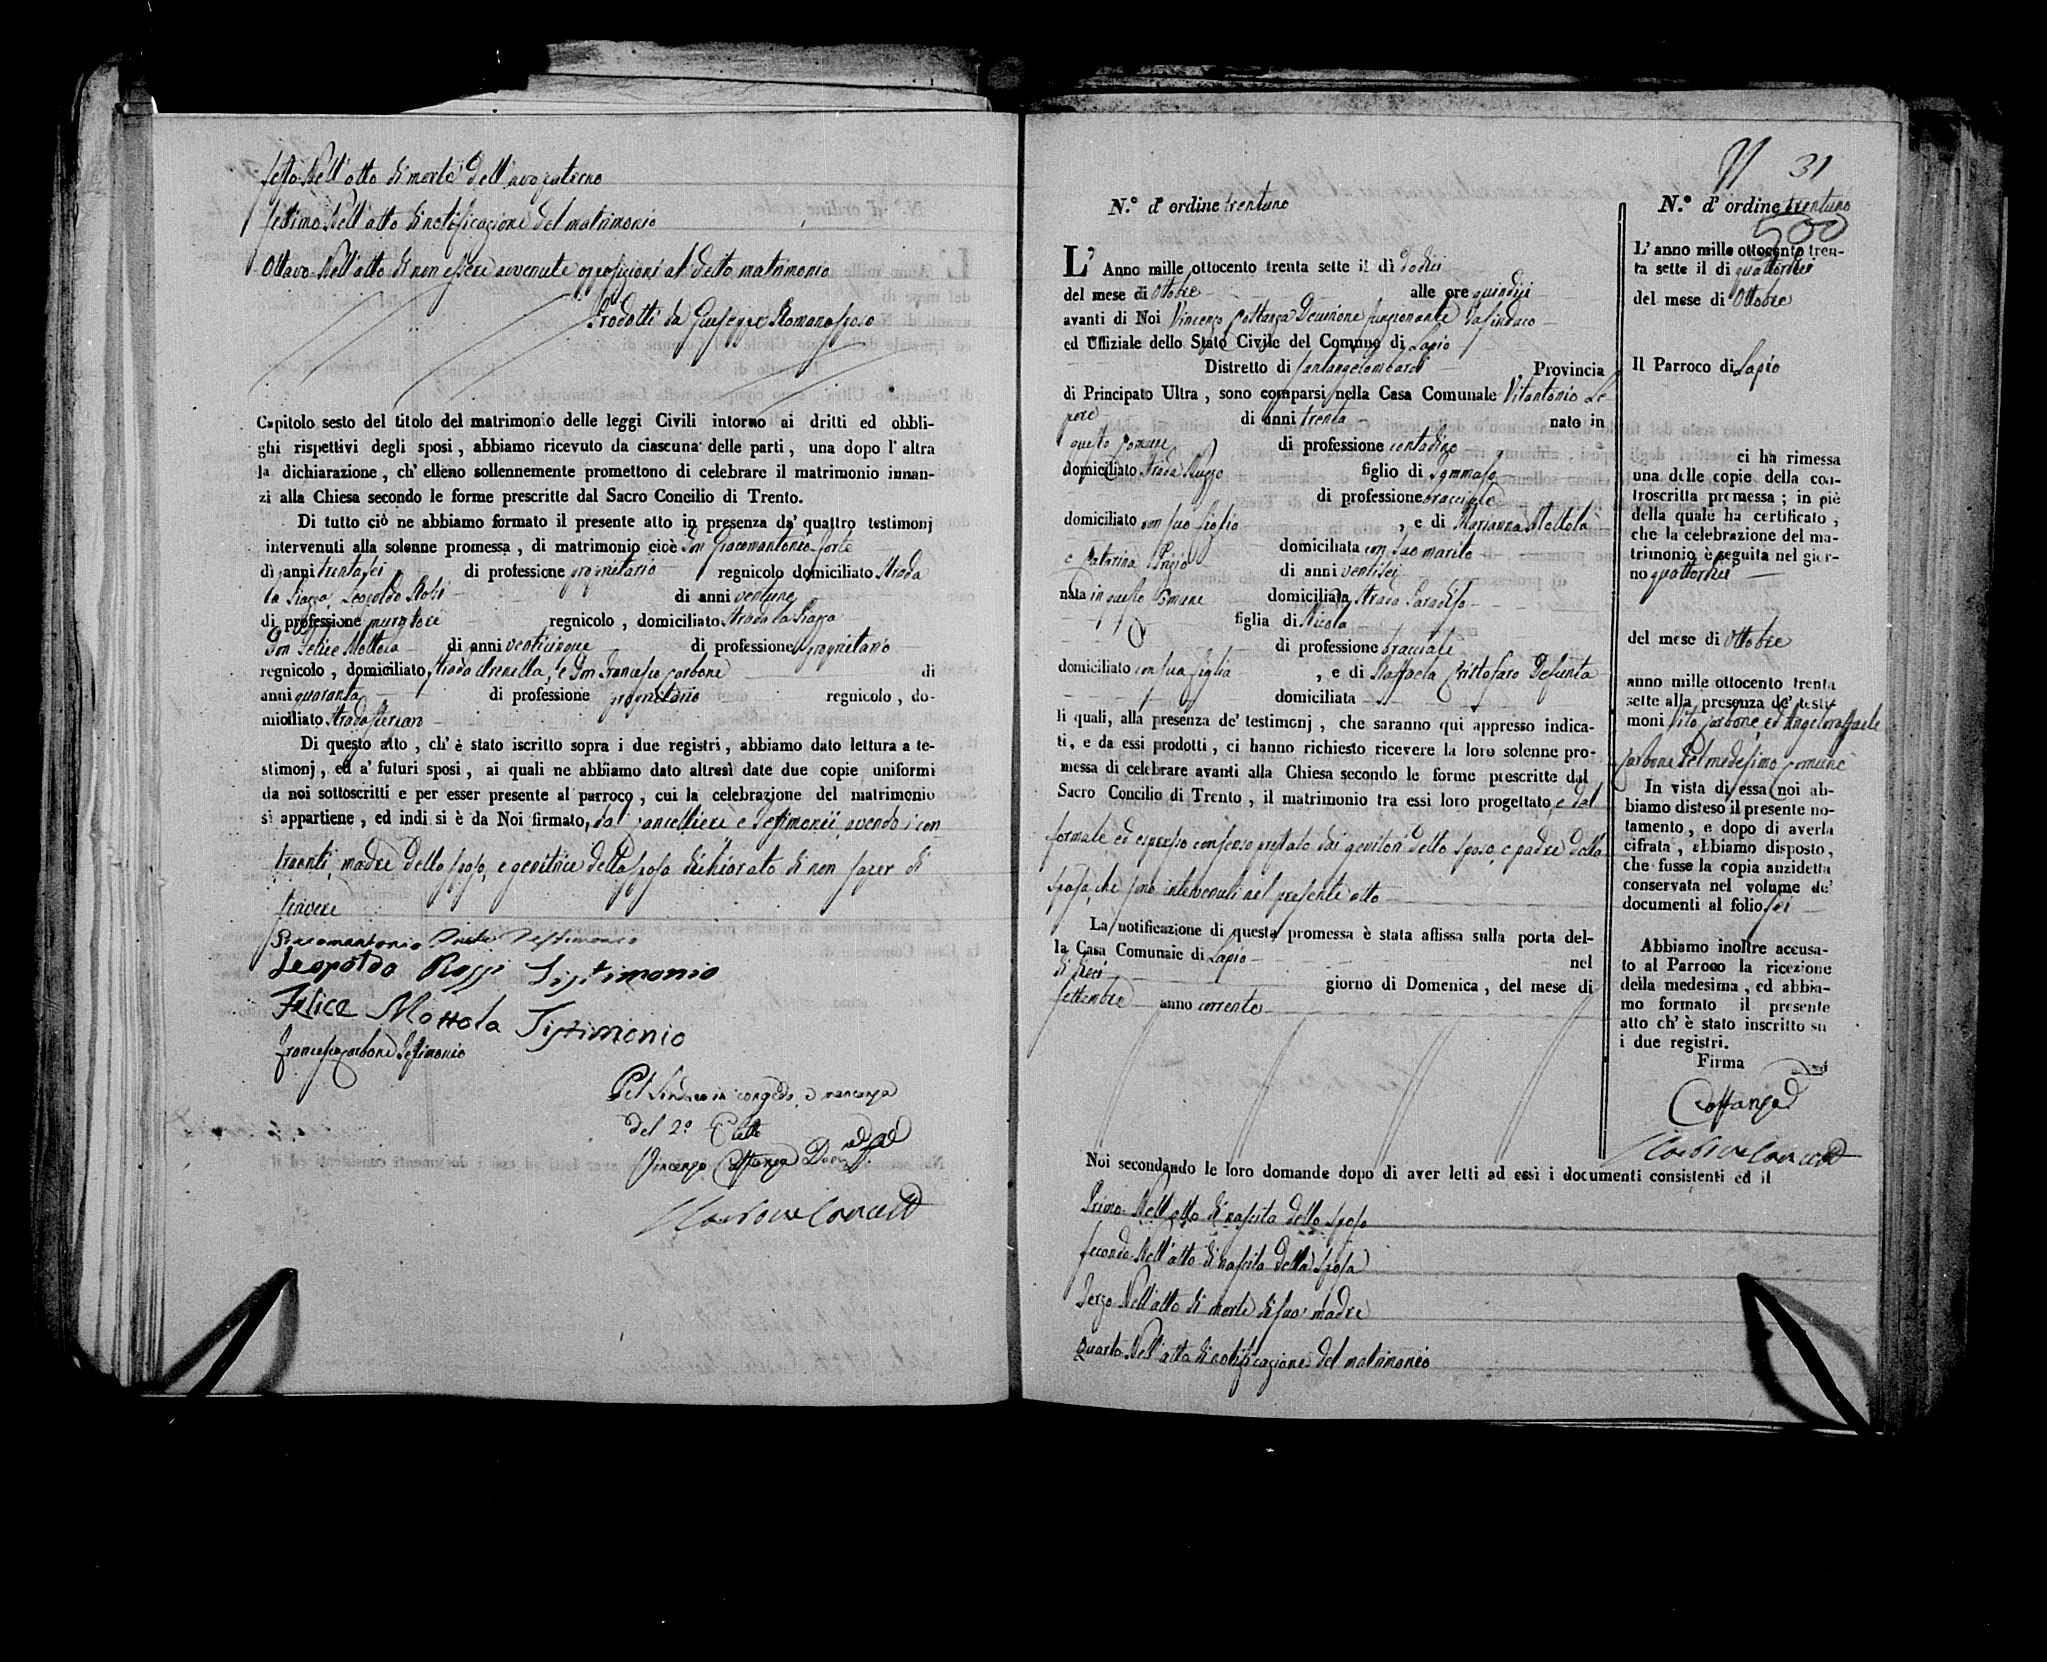 sesto Dell'atto di morte dell'avo paterno
settimo Dell'atto di notificazione del matrimonio
Ottavo Dell'atto di non essere avvenute opposizioni al detto matrimonio
Prodotti da Giuseppe Romano sposo
Capitolo sesto del titolo del matrimonio delle leggi Civili intorno ai dritti ed obbli-
ghi rispettivi degli sposi, abbiamo ricevuto da ciascuna delle parti, una dopo l'altra
la dichiarazione, ch'elleno sollennemente promettono di celebrare il matrimonio innan-
zi alla Chiesa secondo le forme prescritte dal Sacro Concilio di Trento.
Di tutto ciò ne abbiamo formato il presente atto in presenza de' quattro testimonj
intervenuti alla solenne promessa, di matrimonio cioè Don Giacomantonio Forte
di anni trentasei di professione proprietario regnicolo domiciliato Strada
la Piazza, Leopoldo Rossi di anni ventuno
di professione muratore regnicolo, domiciliato Strada la Piazza
Don Felice Mottola di anni venticinque di professione proprietario
regnicolo, domiciliato strada Arenella, e Don Francesco Carbone di
anni quaranta di professione proprietario regnicolo, do-
miciliato Strada
Di questo atto, ch'è stato iscritto sopra i due registri, abbiamo dato lettura a te-
stimonj, ed a' futuri sposi, ai quali ne abbiamo dato altresì date due copie uniformi
da noi sottoscritti e per esser presente al parroco, cui la celebrazione del matrimonio
si appartiene, ed indi si è da Noi firmato, dal Cancelliere e Testimonii avendo i con
traenti, madre dello sposo, e genitrice della sposa dichiarato di non saper di
scrivere
Giacomantonio Forte Testimonio
Leopoldo Rossi Tistimonio
Felice Mottola Tistimonio
Francesco Carbone Testimonio
Pel Sindaco in congedo, e mancanza
del 2º Eletto
Vincenzo Costanza
Carbone Canc
31
N.º d'ordine trentuno
L'Anno mille ottocento trenta sette il dì dodici
del mese di Ottobre alle ore quindici
avanti di Noi Vincenzo Costanza Decurione funzionante da sindaco
ed Uffiziale dello Stato Civile del Comune di Lapio
Distretto di Santangelombardi Provincia
di Principato Ultra, sono comparsi nella Casa Comunale Vitantonio Le-
pore di anni trenta nato in
questo Comune di professione contadino
domiciliato strada Puzzo figlio di Tommaso
di professione bracciale
domiciliato con suo figlio, e di Marianna Mottola
domiciliata con suo marito
e Catarina di anni ventisei
nata in questo Comune domiciliata strada Paradiso
figlia di Nicola
di professione bracciale
domiciliato con sua figlia, e di Raffaela Cristofaro Defunta
domiciliata
li quali, alla presenza de' testimonj, che saranno qui appresso indica-
ti, e da essi prodotti, ci hanno richiesto ricevere la loro solenne pro-
messa di celebrare avanti alla Chiesa secondo le forme prescritte dal
Sacro Concilio di Trento, il matrimonio tra essi loro progettato, e dal
formale ed espresso consenso prestato dai genitori dello sposo, e padre della
sposa, che sono intervenuti nel presente atto
La notificazione di questa promessa è stata affissa sulla porta del-
la Casa Comunale di Lapio nel
dì dieci giorno di Domenica, del mese di
settembre anno corrente
N.º d'ordine trentuno
500
L'anno mille ottocento tren-
ta sette il dì quattordici
del mese di Ottobre
Il Parroco di Lapio
ci ha rimessa
una delle copie della con-
troscritta promessa; in piè
della quale ha certificato,
che la celebrazione del ma-
trimonio è seguita nel gior-
no quattordici
del mese di Ottobre
anno mille ottocento trenta
sette alla presenza de' testi-
moni Vito Carbone, ed Angeloraffaele
Carbone del medesimo comune
In vista di essa noi ab-
biamo disteso il presente no-
tamento, e dopo di averla
cifrata, abbiamo disposto,
che fusse la copia anzidetta
conservata nel volume de'
documenti al folio sei
Abbiamo inoltre accusa-
to al Parroco la ricezione
della medesima, ed abbia-
mo formato il presente
atto ch'è stato inscritto su
i due registri.
Firma
Costanza
Carbone Canc
Noi secondando le loro domande dopo di aver letti ad essi i documenti consistenti ed il
Primo Dell'atto di nascita dello sposo
secondo Dell'atto di nascita della sposa
Terzo Dell'atto di morte di sua madre
Quarto Dell'atto di notificazione del matrimonio